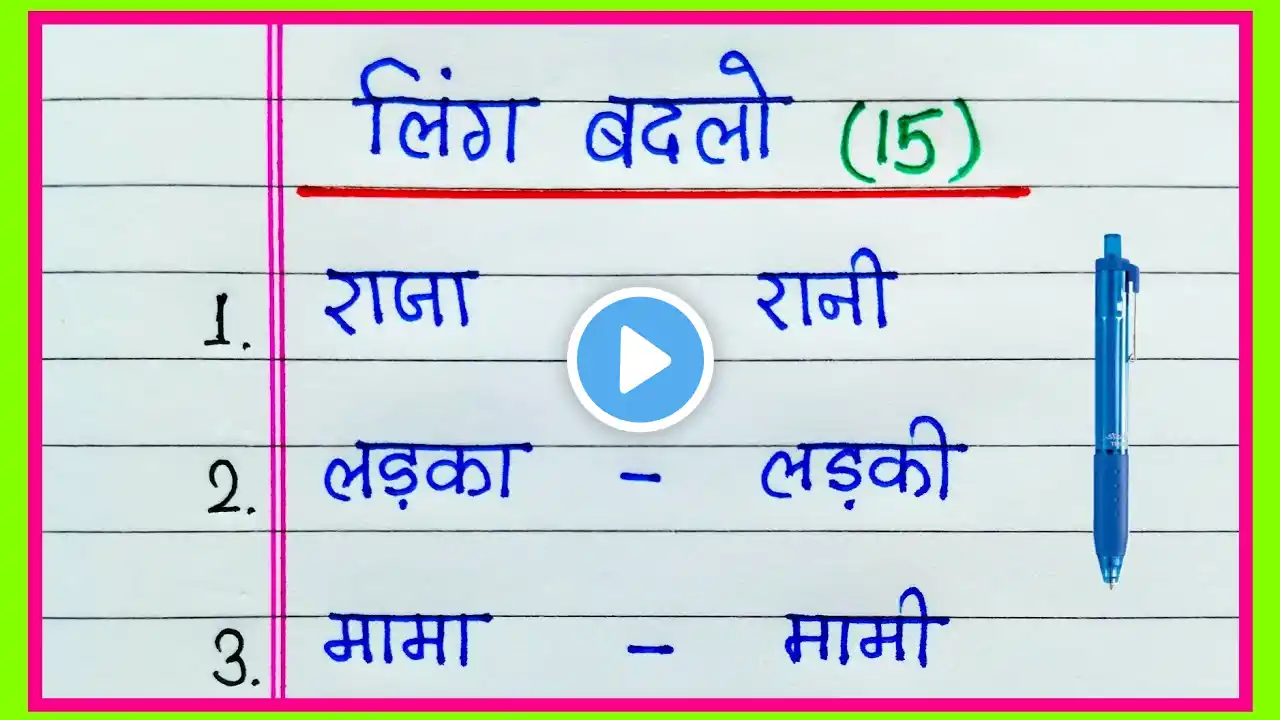 लिंग बदलो (15)
1. राजा रानी
2. लड़का - लड़की
3. मामा - मामी